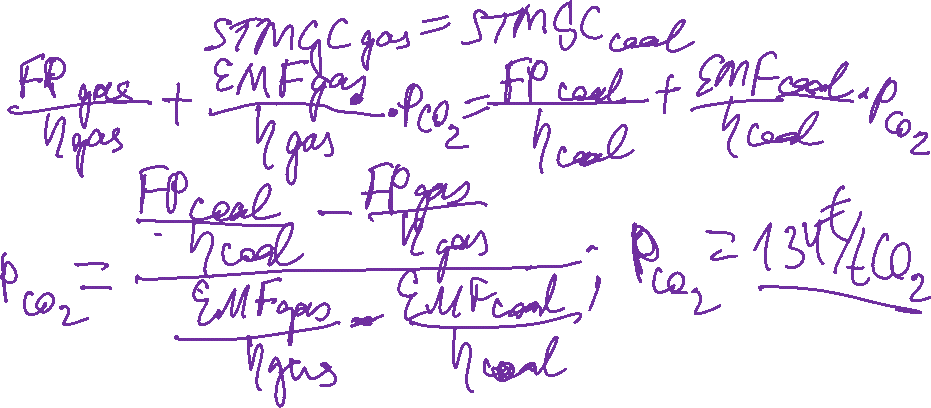 STMGC gas = STMGC coal
FP gas / η gas + EMF gas / η gas · P CO₂ = FP coal / η coal + EMF coal / η coal · P CO₂
P CO₂ = (FP coal / η coal − FP gas / η gas) / (EMF gas / η gas − EMF coal / η coal) ; P CO₂ = 134 €/t CO₂